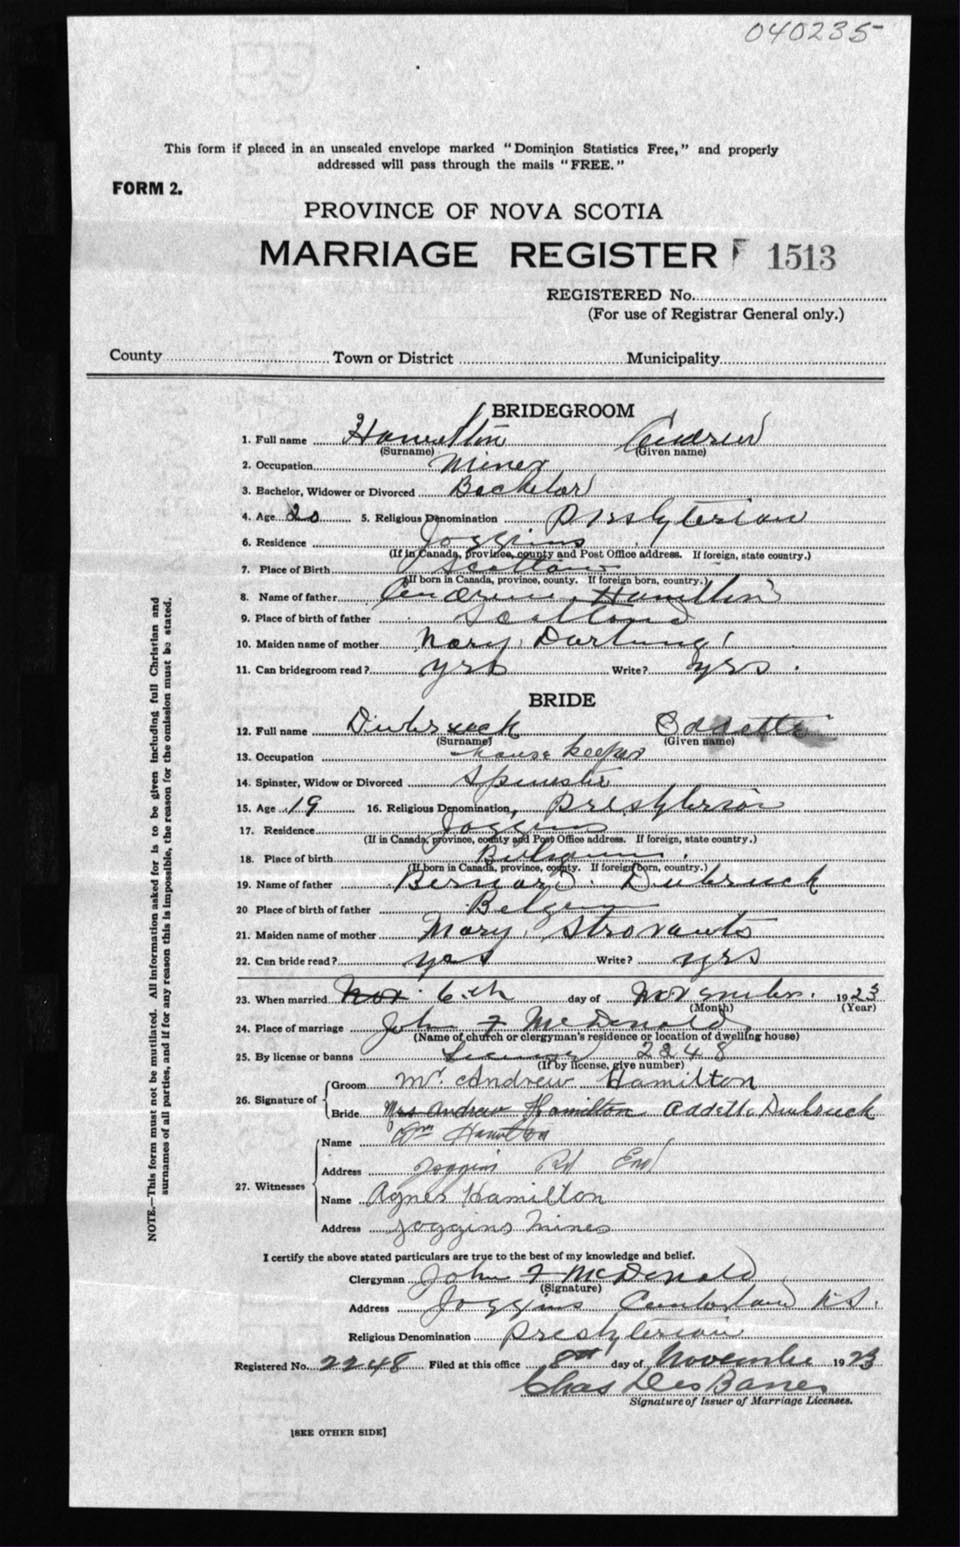 040235
This form if placed in an unsealed envelope marked "Dominion Statistics Free," and properly
addressed will pass through the mails "FREE."
FORM 2.
PROVINCE OF NOVA SCOTIA
MARRIAGE REGISTER F 1513
REGISTERED No.
(For use of Registrar General only.)
County Town or District Municipality
BRIDEGROOM
1. Full name Hamilton Andrew
(Surname) (Given name)
2. Occupation Miner
3. Bachelor, Widower or Divorced Bachelor
4. Age 20 5. Religious Denomination Presbyterian
6. Residence Joggins
(If in Canada, province, county and Post Office address. If foreign, state country.)
7. Place of Birth Scotland
(If born in Canada, province, county. If foreign born, country.)
8. Name of father Andrew Hamilton
9. Place of birth of father Scotland
10. Maiden name of mother Mary Darling
11. Can bridegroom read? yes Write? yes
BRIDE
12. Full name Dubruck Odette
(Surname) (Given name)
13. Occupation house keeper
14. Spinster, Widow or Divorced Spinster
15. Age 19 16. Religious Denomination Presbyterian
17. Residence Joggins
(If in Canada, province, county and Post Office address. If foreign, state country.)
18. Place of birth Belgium
(If born in Canada, province, county. If foreign born, country.)
19. Name of father Bernard Dubruck
20 Place of birth of father Belgium
21. Maiden name of mother Mary Strovants
22. Can bride read? yes Write? yes
23. When married Nov. 6th day of November 1923
(Month) (Year)
24. Place of marriage John F McDonald
(Name of church or clergyman's residence or location of dwelling house)
25. By license or banns License 2248
(If by license, give number)
26. Signature of Groom Mr. Andrew Hamilton
Bride Mrs Andrew Hamilton Odette Dubruck
27. Witnesses Name Wm Hamilton
Address Joggin Rd End
Name Agnes Hamilton
Address Joggins Mines
I certify the above stated particulars are true to the best of my knowledge and belief.
Clergyman John F McDonald
(Signature)
Address Joggins Cumberland N.S.
Religious Denomination Presbyterian
Registered No. 2248 Filed at this office 8th day of November 1923
Chas DesBarres
Signature of Issuer of Marriage Licenses.
[SEE OTHER SIDE]
NOTE.—This form must not be mutilated. All information asked for is to be given including full Christian and
surnames of all parties, and if for any reason this is impossible, the reason for the omission must be stated.